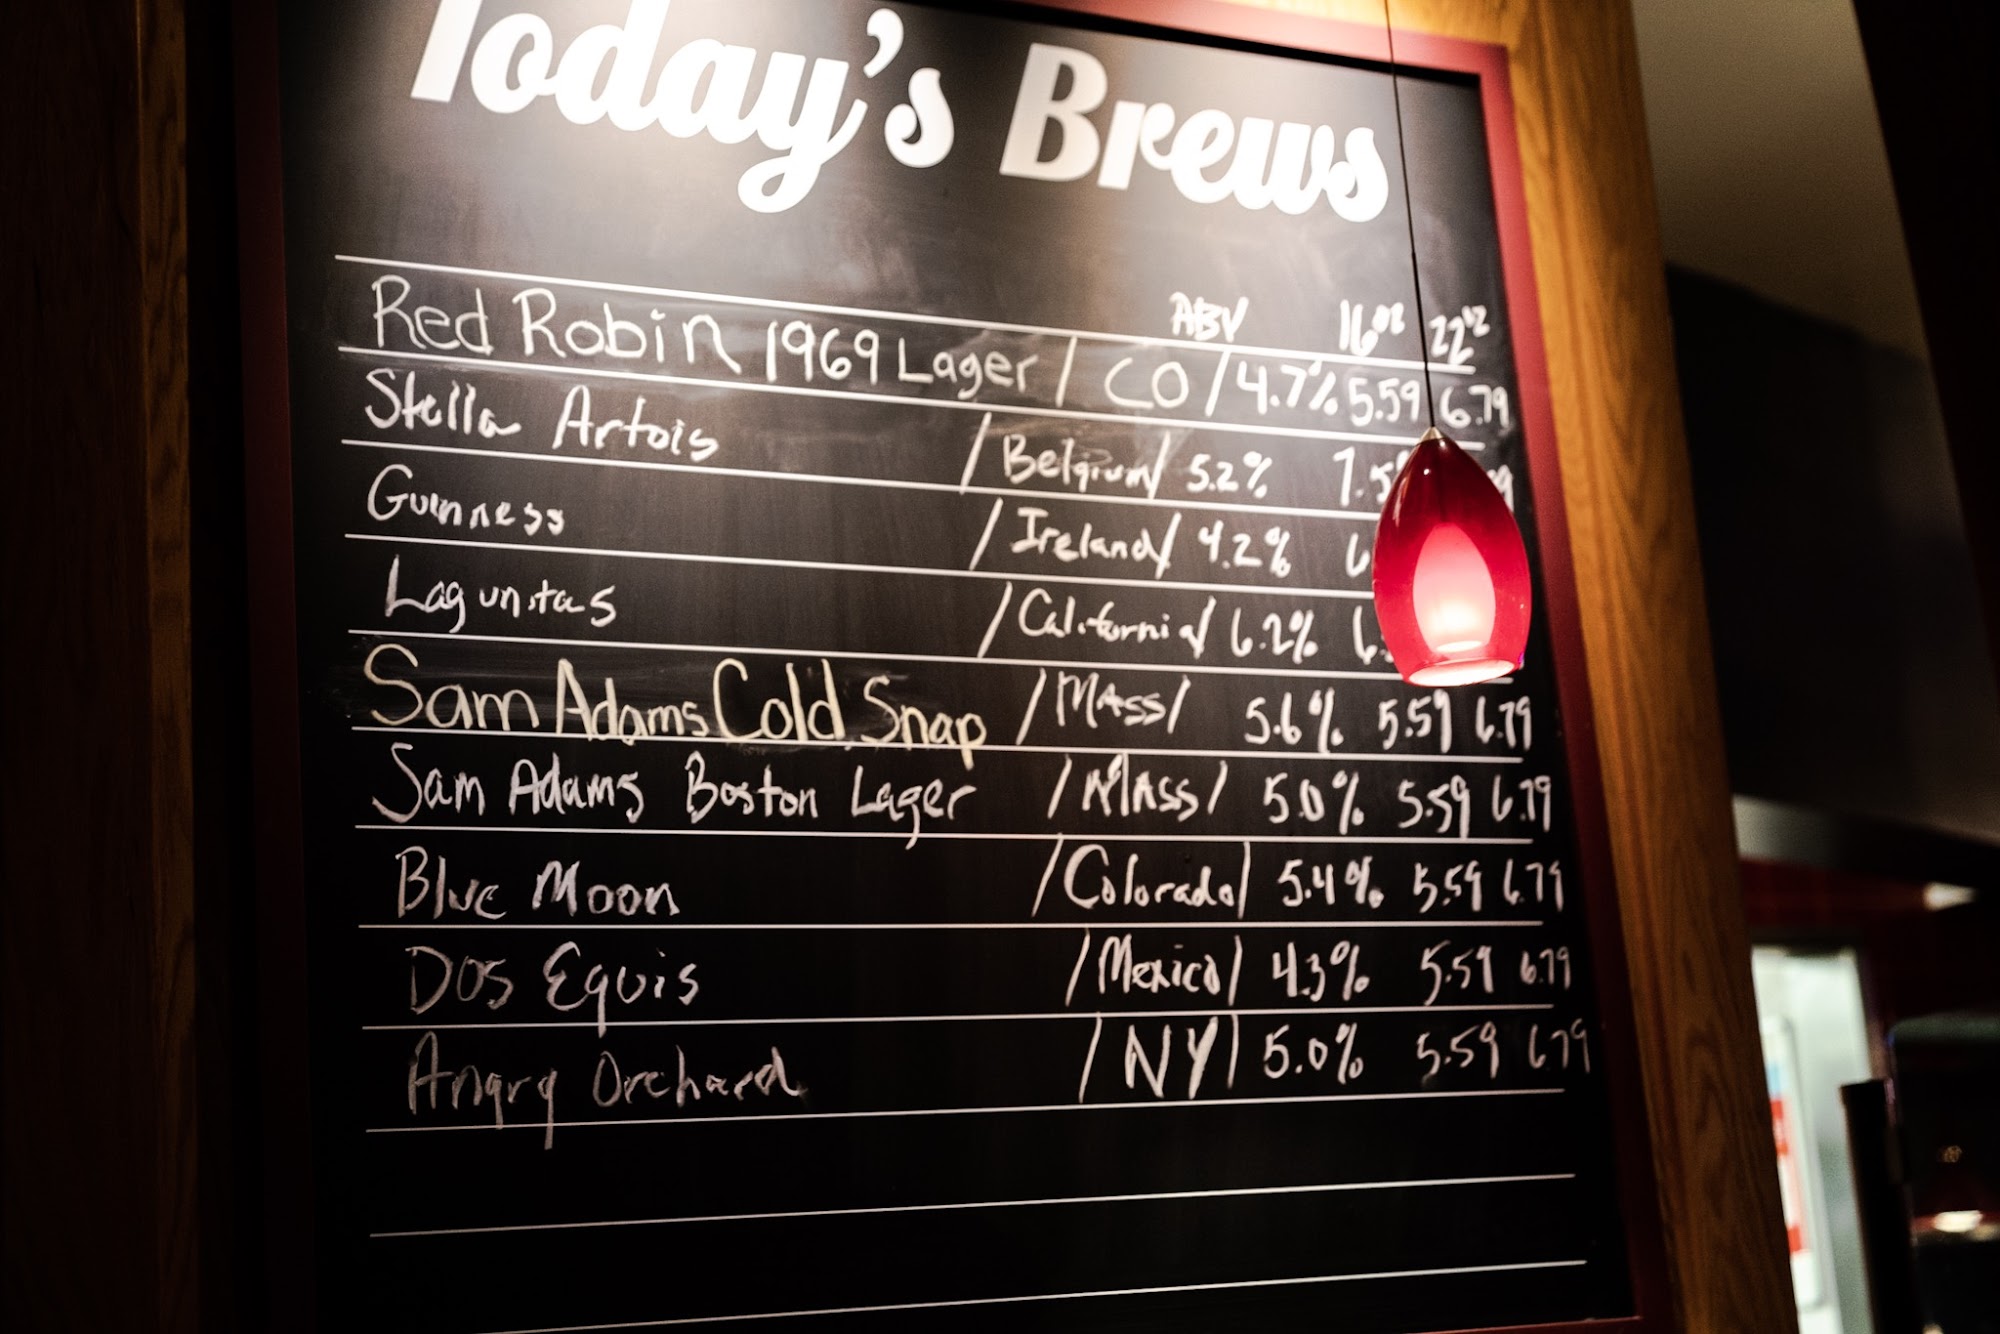 Today's Brews
ABV 16oz 22oz
Red Robin 1969 Lager / CO / 4.7% 5.59 6.79
Stella Artois / Belgium / 5.2%
Guinness / Ireland / 4.2%
Lagunitas / California / 6.2%
Sam Adams Cold Snap / MAss / 5.6% 5.59 6.79
Sam Adams Boston Lager / MAss / 5.0% 5.59 6.79
Blue Moon / Colorado / 5.4% 5.59 6.79
Dos Equis / Mexico / 4.3% 5.59 6.79
Angry Orchard / NY / 5.0% 5.59 6.79